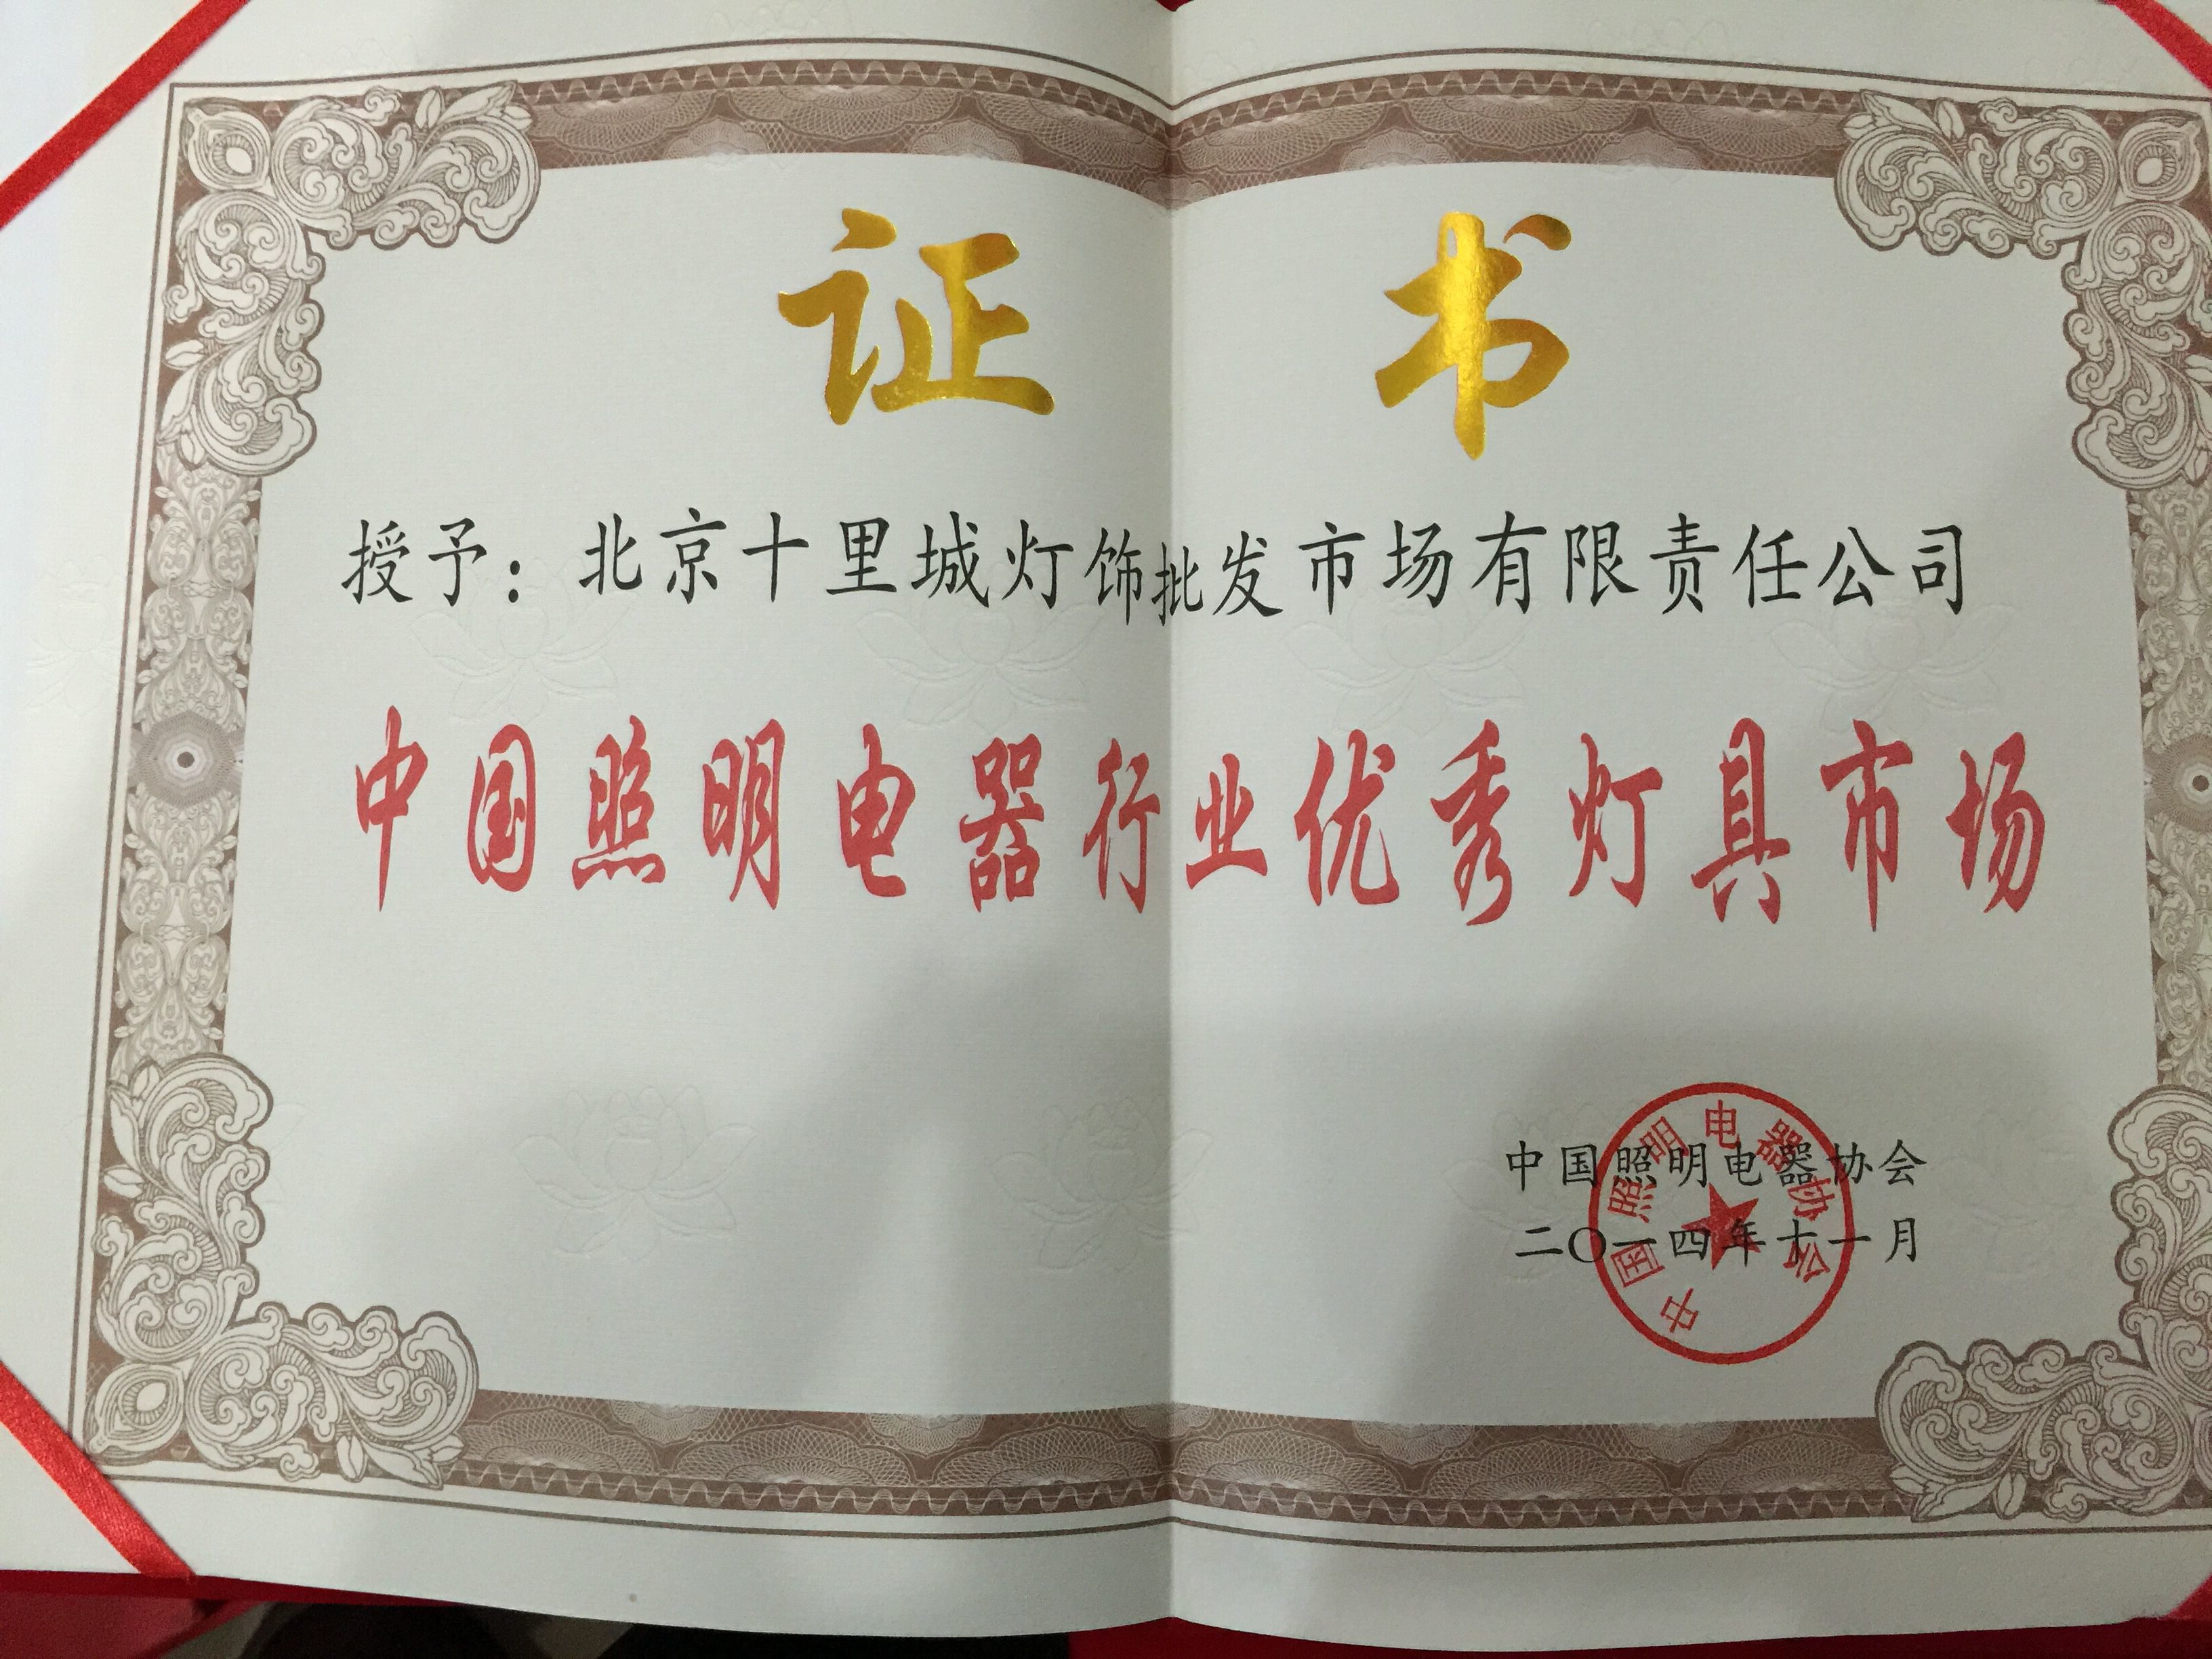 证书
授予：北京十里城灯饰批发市场有限责任公司
中国照明电器行业优秀灯具市场
中国照明电器协会
二〇一四年十一月
中国照明电器协会